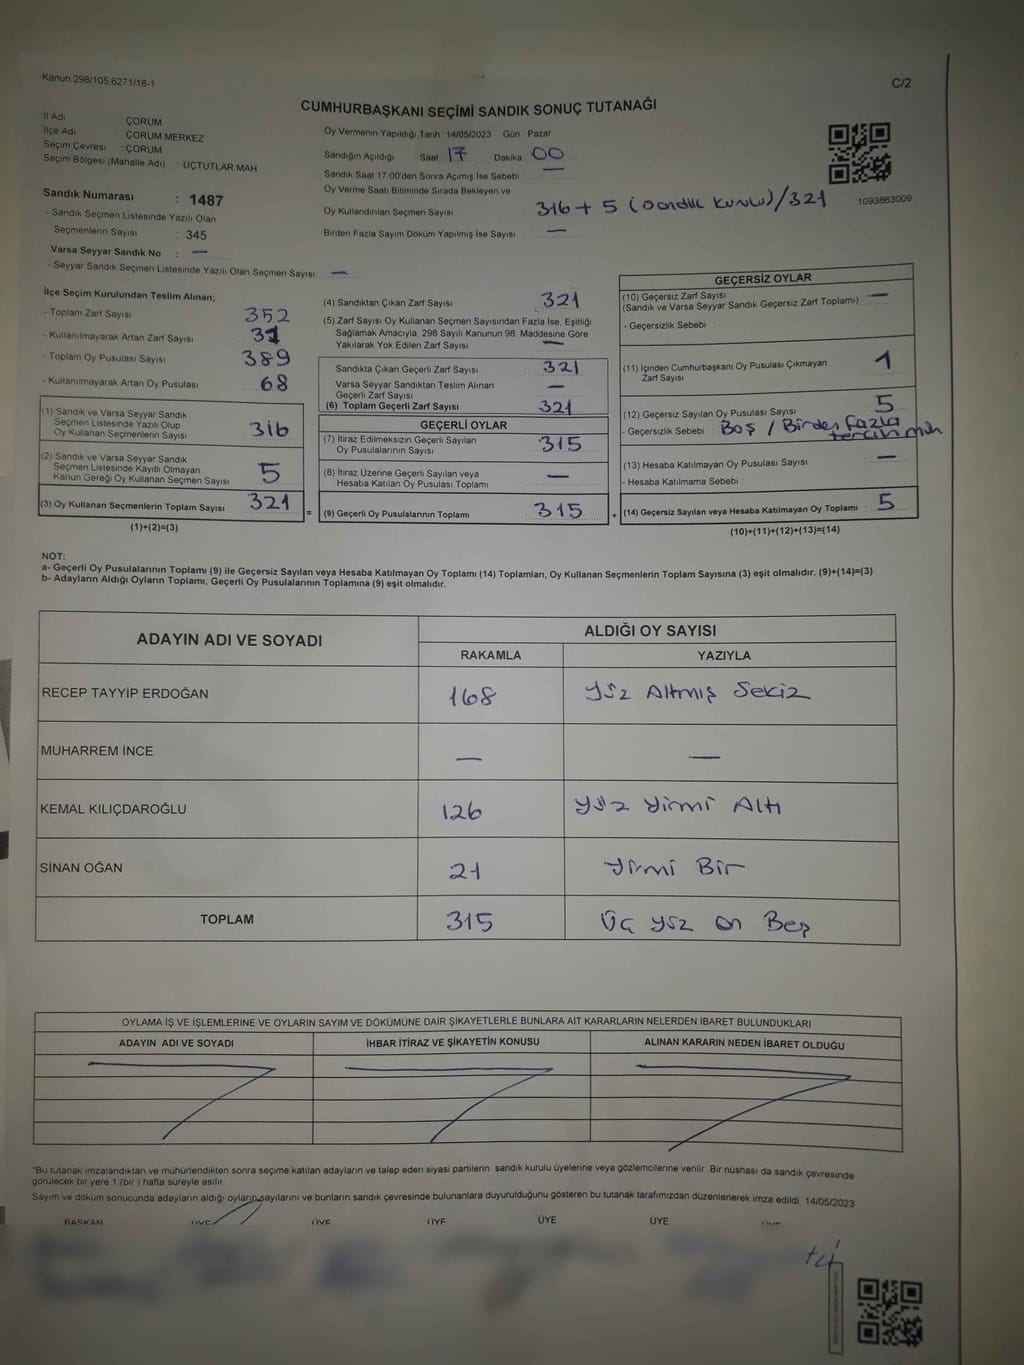 Kanun 298/105,6271/18-1
C/2
CUMHURBAŞKANI SEÇİMİ SANDIK SONUÇ TUTANAĞI
İl Adı ÇORUM
İlçe Adı ÇORUM MERKEZ
Seçim Çevresi : ÇORUM
Seçim Bölgesi (Mahalle Adı) : ÜÇTUTLAR MAH
Sandık Numarası : 1487
- Sandık Seçmen Listesinde Yazılı Olan
Seçmenlerin Sayısı : 345
Varsa Seyyar Sandık No : —
- Seyyar Sandık Seçmen Listesinde Yazılı Olan Seçmen Sayısı: —
Oy Vermenin Yapıldığı Tarih 14/05/2023 Gün Pazar
Sandığın Açıldığı Saat 17 Dakika 00
Sandık Saat 17:00'den Sonra Açımış İse Sebebi : —
Oy Verme Saati Bitiminde Sırada Bekleyen ve
Oy Kullandırılan Seçmen Sayısı 316 + 5 (Sandık Kurulu) / 321
Birden Fazla Sayım Döküm Yapılmış İse Sayısı —
1093863009
İlçe Seçim Kurulundan Teslim Alınan;
- Toplam Zarf Sayısı 352
- Kullanılmayarak Artan Zarf Sayısı 31
- Toplam Oy Pusulası Sayısı 389
- Kullanılmayarak Artan Oy Pusulası : 68
(1) Sandık ve Varsa Seyyar Sandık
Seçmen Listesinde Yazılı Olup
Oy Kullanan Seçmenlerin Sayısı 316
(2) Sandık ve Varsa Seyyar Sandık
Seçmen Listesinde Kayıtlı Olmayan
Kanun Gereği Oy Kullanan Seçmen Sayısı 5
(3) Oy Kullanan Seçmenlerin Toplam Sayısı 321
(1)+(2)=(3)
=
(4) Sandıktan Çıkan Zarf Sayısı 321
(5) Zarf Sayısı Oy Kullanan Seçmen Sayısından Fazla İse, Eşitliği
Sağlamak Amacıyla, 298 Sayılı Kanunun 98. Maddesine Göre
Yakılarak Yok Edilen Zarf Sayısı —
Sandıkta Çıkan Geçerli Zarf Sayısı : 321
Varsa Seyyar Sandıktan Teslim Alınan
Geçerli Zarf Sayısı —
(6) Toplam Geçerli Zarf Sayısı : 321
GEÇERLİ OYLAR
(7) İtiraz Edilmeksizin Geçerli Sayılan
Oy Pusulalarının Sayısı : 315
(8) İtiraz Üzerine Geçerli Sayılan veya
Hesaba Katılan Oy Pusulası Toplamı —
(9) Geçerli Oy Pusulalarının Toplamı : 315
+
GEÇERSİZ OYLAR
(10) Geçersiz Zarf Sayısı
(Sandık ve Varsa Seyyar Sandık Geçersiz Zarf Toplamı) —
- Geçersizlik Sebebi :
(11) İçinden Cumhurbaşkanı Oy Pusulası Çıkmayan
Zarf Sayısı 1
(12) Geçersiz Sayılan Oy Pusulası Sayısı 5
- Geçersizlik Sebebi : Boş / Birden Fazla
tercih
(13) Hesaba Katılmayan Oy Pusulası Sayısı —
- Hesaba Katılmama Sebebi :
(14) Geçersiz Sayılan veya Hesaba Katılmayan Oy Toplamı : 5
(10)+(11)+(12)+(13)=(14)
NOT:
a- Geçerli Oy Pusulalarının Toplamı (9) ile Geçersiz Sayılan veya Hesaba Katılmayan Oy Toplamı (14) Toplamları, Oy Kullanan Seçmenlerin Toplam Sayısına (3) eşit olmalıdır. (9)+(14)=(3)
b- Adayların Aldığı Oyların Toplamı, Geçerli Oy Pusulalarının Toplamına (9) eşit olmalıdır.
ADAYIN ADI VE SOYADI
ALDIĞI OY SAYISI
RAKAMLA YAZIYLA
RECEP TAYYİP ERDOĞAN 168 yüz Altmış Sekiz
MUHARREM İNCE — —
KEMAL KILIÇDAROĞLU 126 yüz yirmi Altı
SİNAN OĞAN 21 yirmi Bir
TOPLAM 315 Üç yüz on Beş
OYLAMA İŞ VE İŞLEMLERİNE VE OYLARIN SAYIM VE DÖKÜMÜNE DAİR ŞİKAYETLERLE BUNLARA AİT KARARLARIN NELERDEN İBARET BULUNDUKLARI
ADAYIN ADI VE SOYADI İHBAR İTİRAZ VE ŞİKAYETİN KONUSU ALINAN KARARIN NEDEN İBARET OLDUĞU
*Bu tutanak imzalandıktan ve mühürlendikten sonra seçime katılan adayların ve talep eden siyasi partilerin sandık kurulu üyelerine veya gözlemcilerine verilir. Bir nüshası da sandık çevresinde
görülecek bir yere 1 (bir) hafta süreyle asılır
Sayım ve döküm sonucunda adayların aldığı oyların sayılarını ve bunların sandık çevresinde bulunanlara duyurulduğunu gösteren bu tutanak tarafımızdan düzenlenerek imza edildi. 14/05/2023
BAŞKAN ÜYE ÜYE ÜYE ÜYE ÜYE